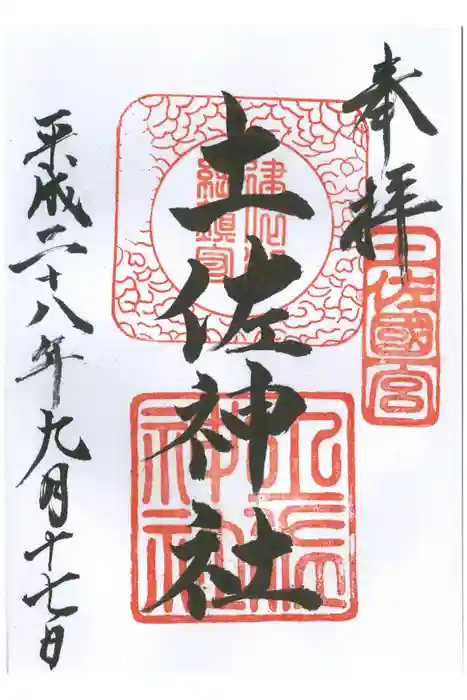 奉拝
土佐神社
平成二十八年九月十七日
土佐國
土佐神社